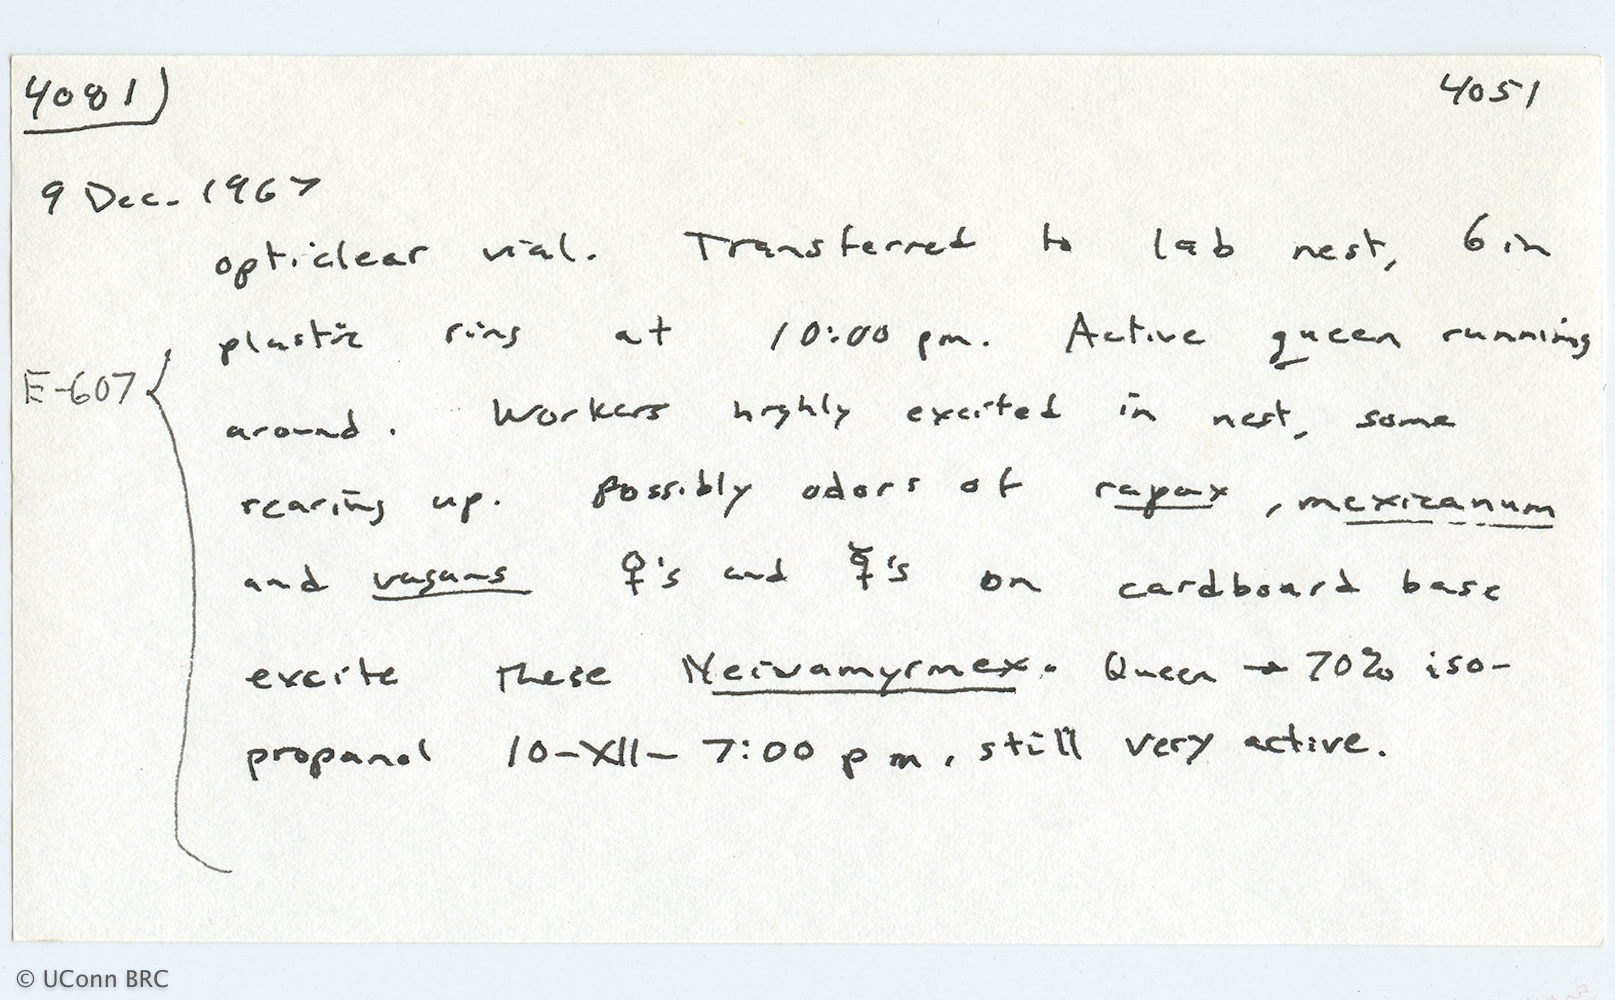 4081) 4051
9 Dec. 1967
opticlear vial. Transferred to lab nest, 6 in
plastic ring at 10:00 pm. Active queen running
E-607 { around. Workers highly excited in nest, some
rearing up. Possibly odors of rapax, mexicanum
and vagans ♀'s and ☿'s on cardboard base
excite these Neivamyrmex. Queen → 70% iso-
propanol 10-XII- 7:00 pm, still very active.
© UConn BRC